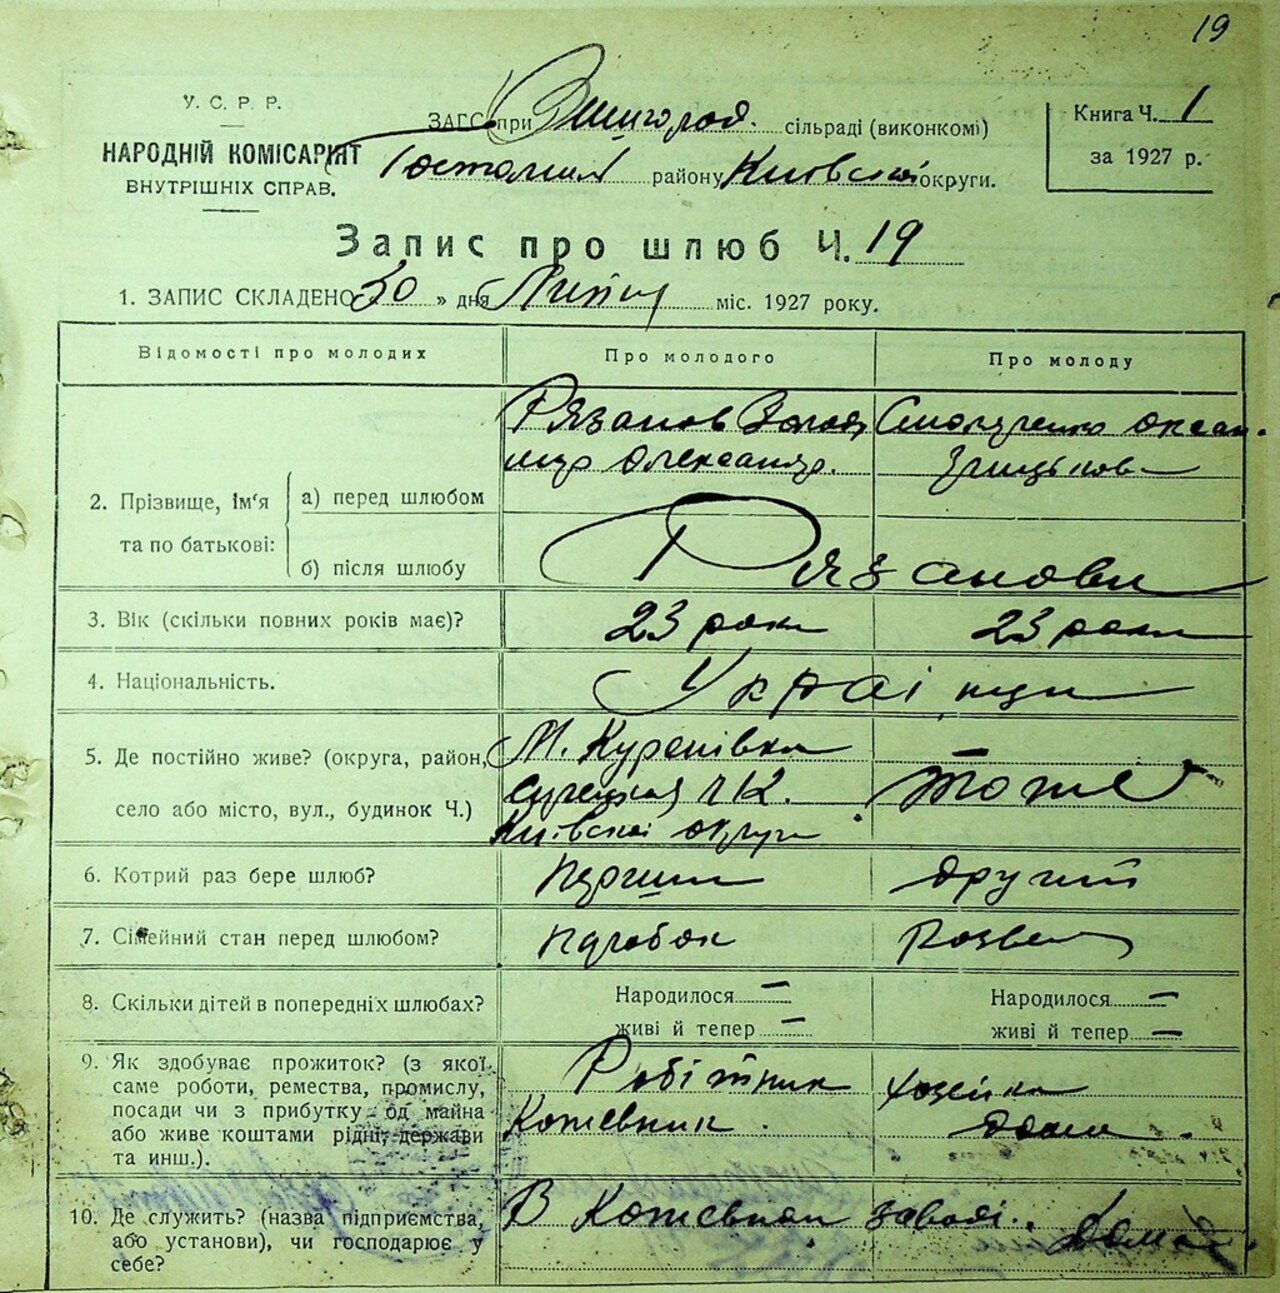 19
У. С. Р. Р.
НАРОДНІЙ КОМІСАРІЯТ
ВНУТРІШНІХ СПРАВ.
ЗАГС при Вишгород. сільраді (виконкомі)
району Київської округи.
Книга Ч. 1
за 1927 р.
Запис про шлюб Ч. 19
1. ЗАПИС СКЛАДЕНО 30 » дня Липня міс. 1927 року.
Відомості про молодих
Про молодого
Про молоду
2. Прізвище, ім‘я та по батькові:
а) перед шлюбом
б) після шлюбу
Рязанов Володи
мир Олександр.
Оксан
Рязанови
3. Вік (скільки повних років має)?
23 роки
23 роки
4. Національність.
Українци
5. Де постійно живе? (округа, район,
село або місто, вул., будинок Ч.)
М. Куренівка
ч 12.
Київської округи
тоже
6. Котрий раз бере шлюб?
перший
другий
7. Сімейний стан перед шлюбом?
парубок
Розвед
8. Скільки дітей в попередніх шлюбах?
Народилося —
живі й тепер —
Народилося —
живі й тепер —
9. Як здобуває прожиток? (з якої
саме роботи, ремества, промислу,
посади чи з прибутку од майна
або живе коштами рідні, держави
та инш.).
Робітник
Кожевник.
хозяйка
дома.
10. Де служить? (назва підприємства,
або установи), чи господарює у
себе?
В Кожевном заводі.
Дома